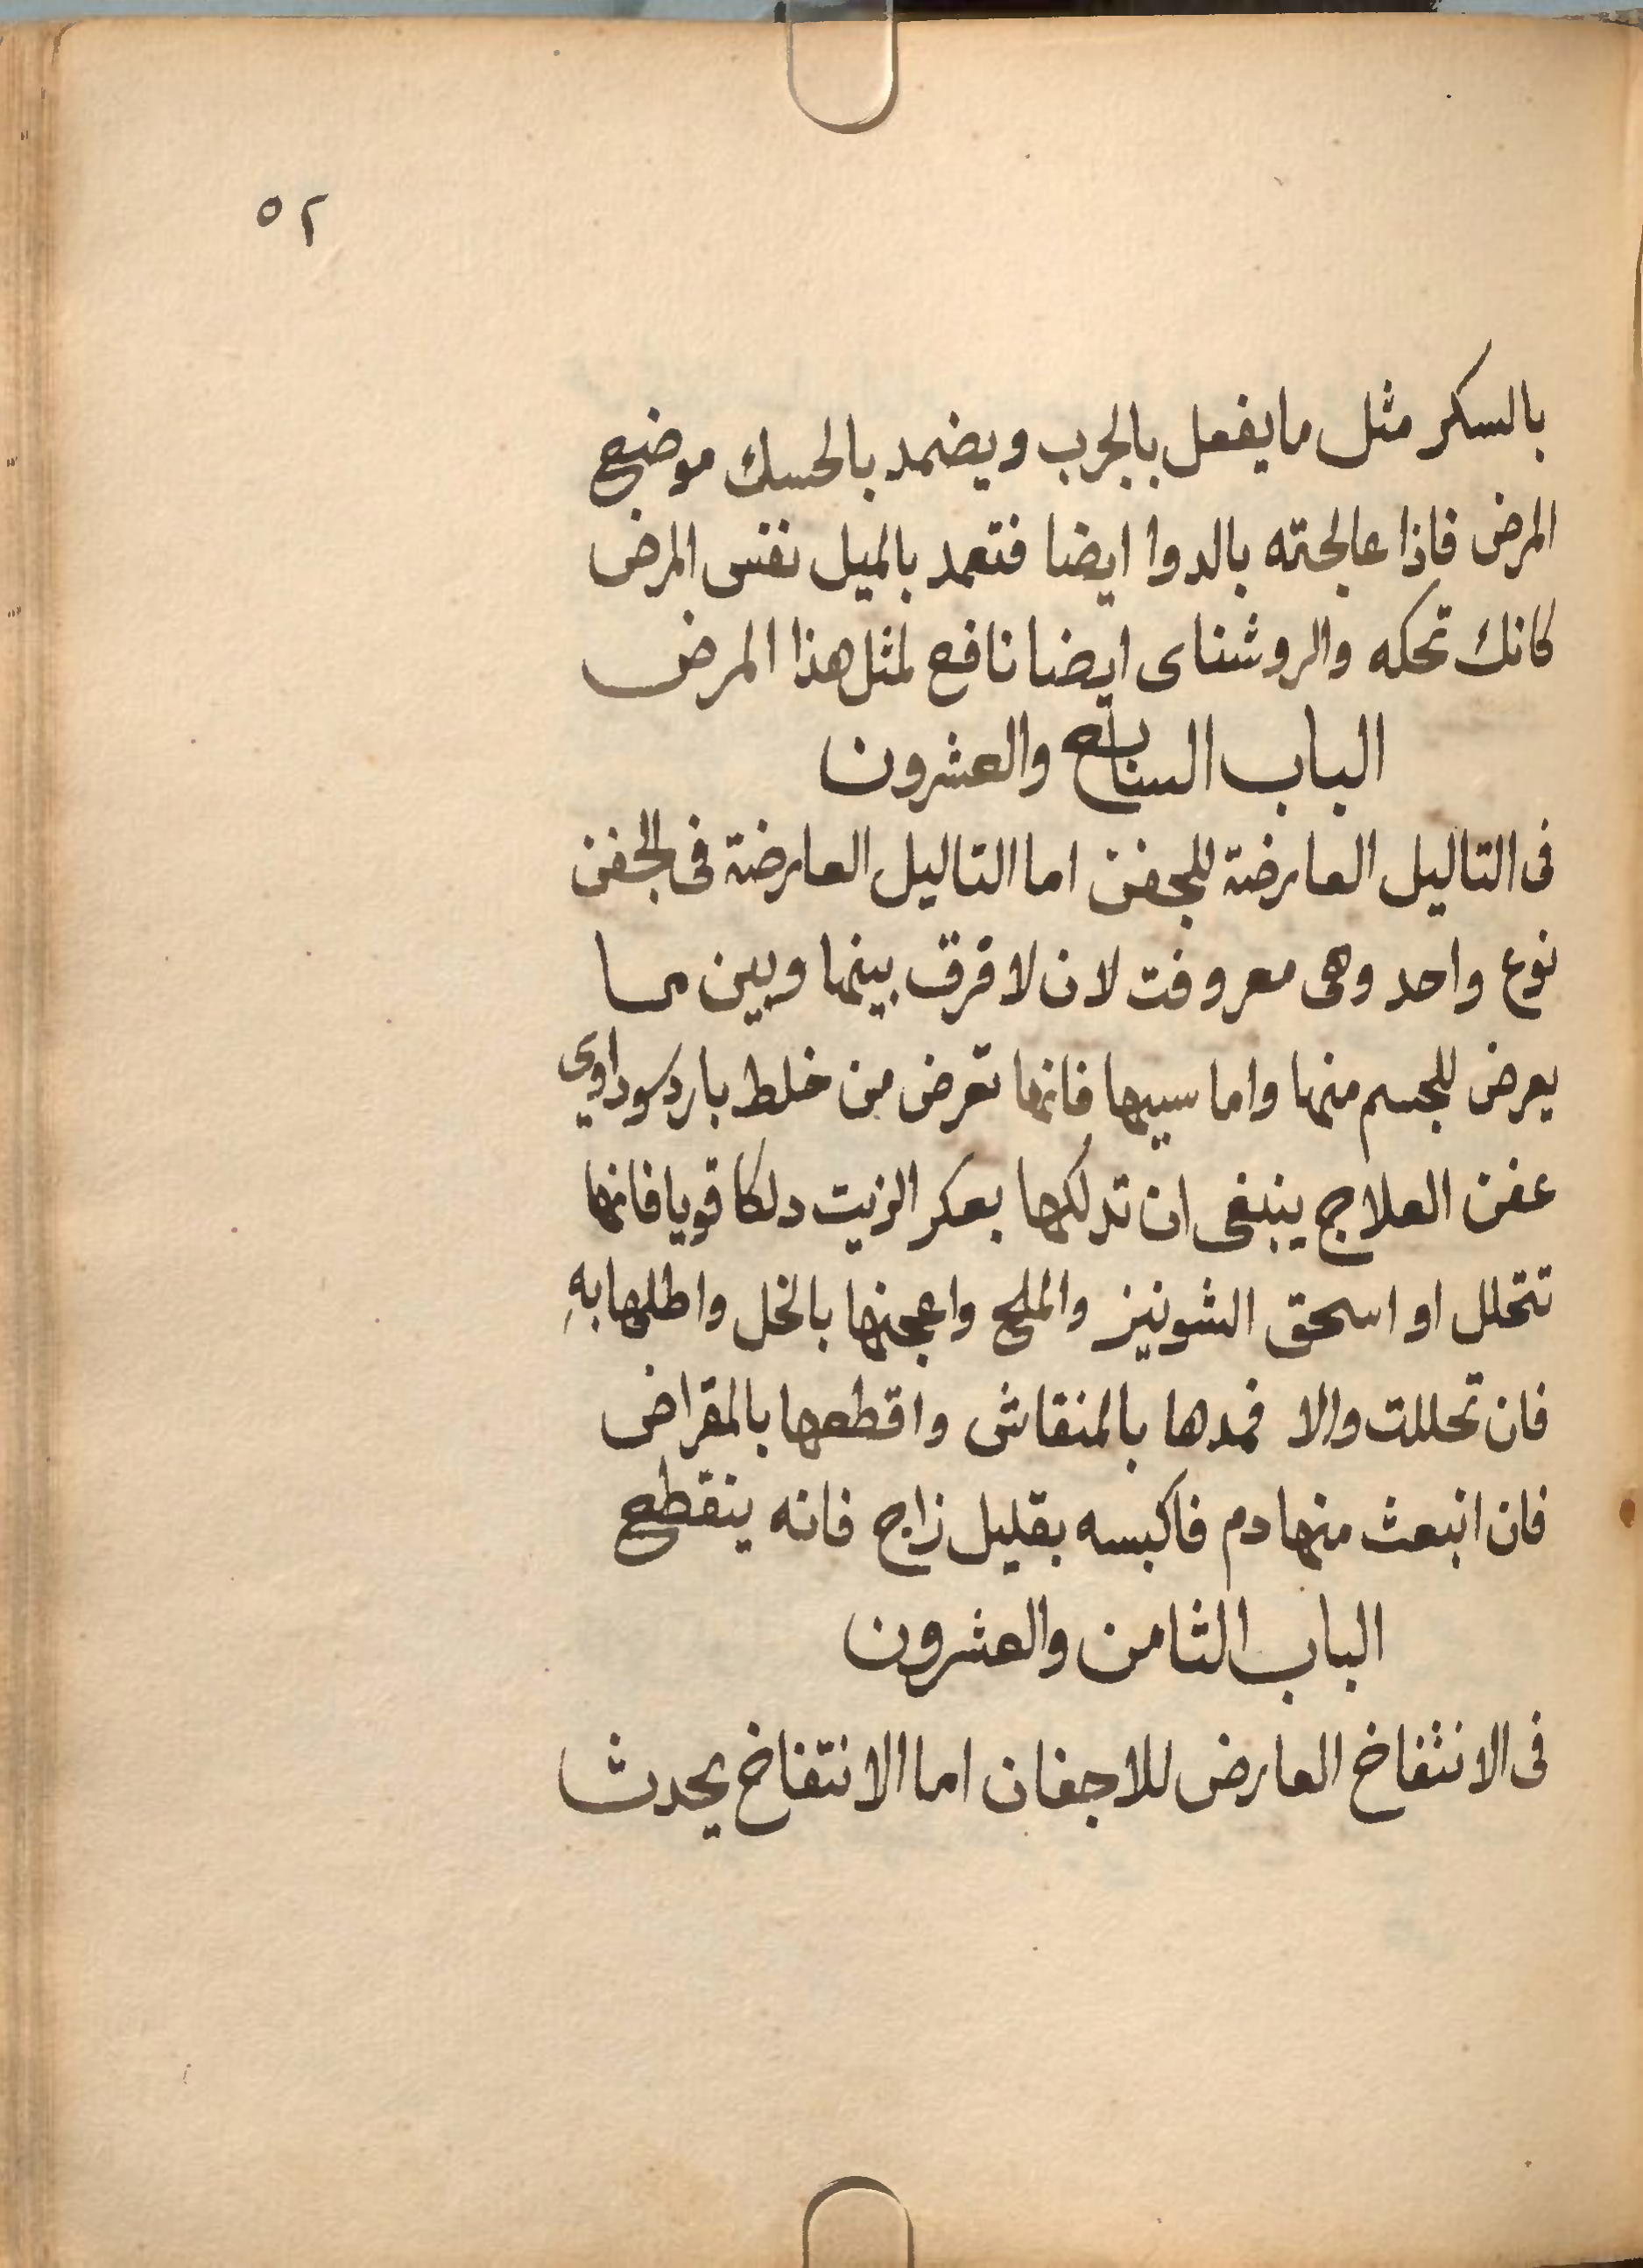 ٥٢
بالسكر مثل ما يفعل بالجرب ويضمد بالحسك موضع
المرض فاذا عالجته بالدوا ايضا فتعمد بالميل نفس المرض
كانك تحكه والروشناى ايضا نافع لمثل هذا المرض
الباب السابع والعشرون
فى التاليل العارضة للجفن اما التاليل العارضة فى الجفن
نوع واحد وهى معروفت لان لا فرق بينها وبين ما
يعرض للجسم منها واما سببها فانها تعرض من خلط بارد سوداوي
عفن العلاج ينبغى ان تدلكها بعكر الزيت دلكا قويا فانها
تتحلل او اسحق الشونيز والملح واعجنها بالخل واطلها بهِ
فان تحللت والا فمدها بالمنقاش واقطعها بالمقراض
فان انبعث منها دم فاكبسه بقليل زاج فانه ينقطع
الباب الثامن والعشرون
فى الانثفاخ العارض للاجفان اما الانتفاخ يحدث